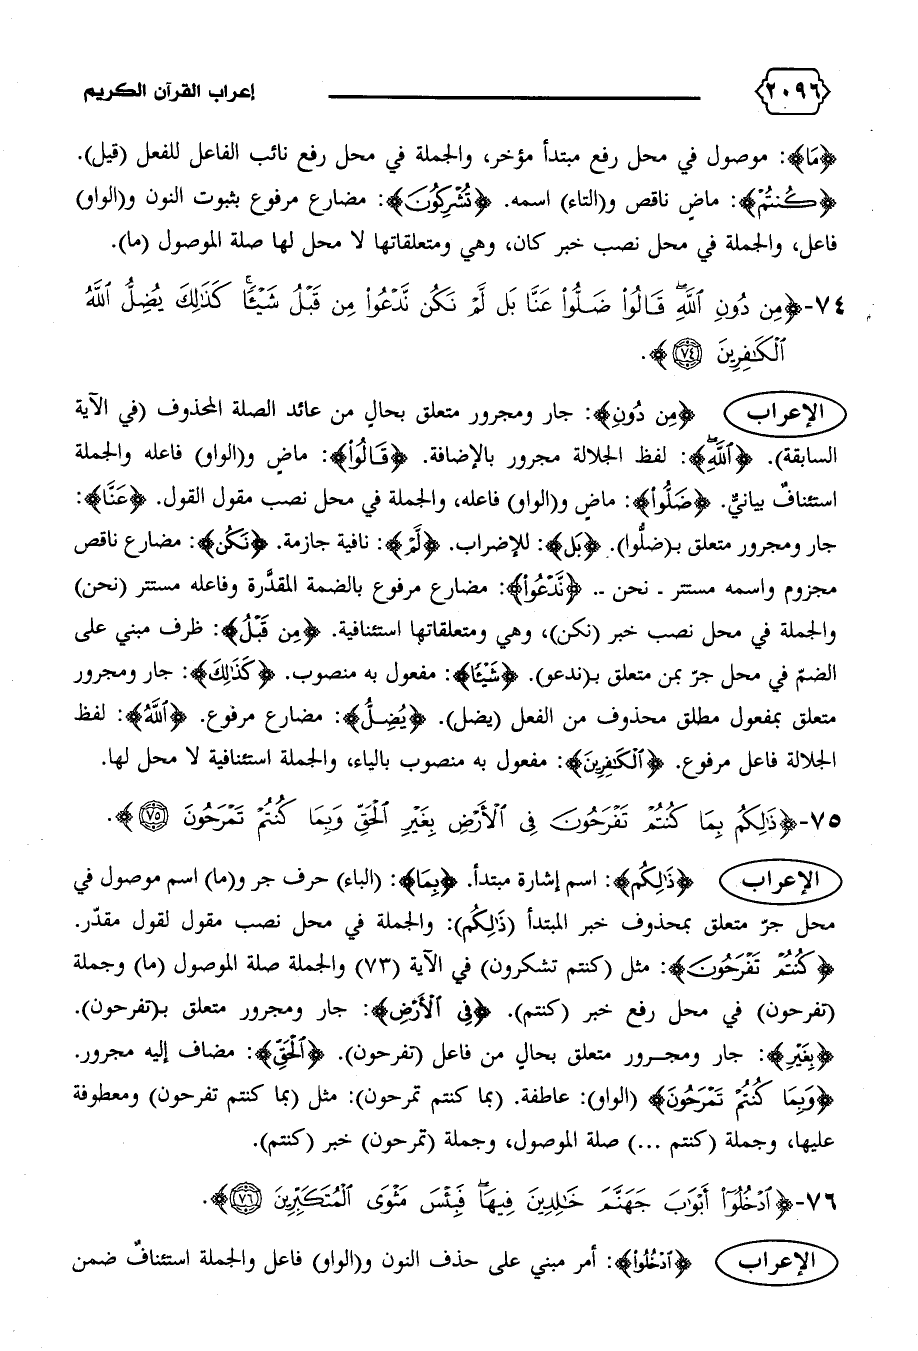 ٢٠٩٦ إعراب القرآن الكريم
﴿مَا﴾: موصول في محل رفع مبتدأ مؤخر، والجملة في محل رفع نائب الفاعل للفعل (قيل).
﴿كُنتُمْ﴾: ماضٍ ناقص و(التاء) اسمه. ﴿تُشْرِكُونَ﴾: مضارع مرفوع بثبوت النون و(الواو)
فاعل، والجملة في محل نصب خبر كان، وهي ومتعلقاتها لا محل لها صلة الموصول (ما).
٧٤-﴿مِن دُونِ ٱللَّهِۖ قَالُوا۟ ضَلُّوا۟ عَنَّا بَل لَّمْ نَكُن نَّدْعُوا۟ مِن قَبْلُ شَيْـًٔاۚ كَذَٰلِكَ يُضِلُّ ٱللَّهُ
ٱلْكَـٰفِرِينَ ﴿٧٤﴾﴾.
الإعراب ﴿مِن دُونِ﴾: جار ومجرور متعلق بحالٍ من عائد الصلة المحذوف (في الآية
السابقة). ﴿ٱللَّهِۖ﴾: لفظ الجلالة مجرور بالإضافة. ﴿قَالُوا۟﴾: ماضٍ و(الواو) فاعله والجملة
استئنافٌ بيانيٌّ. ﴿ضَلُّوا۟﴾: ماضٍ و(الواو) فاعله، والجملة في محل نصب مقول القول. ﴿عَنَّا﴾:
جار ومجرور متعلق بـ(ضلُّوا). ﴿بَل﴾: للإضراب. ﴿لَّمْ﴾: نافية جازمة. ﴿نَكُن﴾: مضارع ناقص
مجزوم واسمه مستتر ـ نحن ـ. ﴿نَّدْعُوا۟﴾: مضارع مرفوع بالضمة المقدَّرة وفاعله مستتر (نحن)
والجملة في محل نصب خبر (نكن)، وهي ومتعلقاتها استئنافية. ﴿مِن قَبْلُ﴾: ظرف مبني على
الضمّ في محل جرّ بمن متعلق بـ(ندعو). ﴿شَيْـًٔا﴾: مفعول به منصوب. ﴿كَذَٰلِكَ﴾: جار ومجرور
متعلق بمفعول مطلق محذوف من الفعل (يضل). ﴿يُضِلُّ﴾: مضارع مرفوع. ﴿ٱللَّهُ﴾: لفظ
الجلالة فاعل مرفوع. ﴿ٱلْكَـٰفِرِينَ﴾: مفعول به منصوب بالياء، والجملة استئنافية لا محل لها.
٧٥-﴿ذَٰلِكُم بِمَا كُنتُمْ تَفْرَحُونَ فِى ٱلْأَرْضِ بِغَيْرِ ٱلْحَقِّ وَبِمَا كُنتُمْ تَمْرَحُونَ ﴿٧٥﴾﴾.
الإعراب ﴿ذَٰلِكُم﴾: اسم إشارة مبتدأ. ﴿بِمَا﴾: (الباء) حرف جر و(ما) اسم موصول في
محل جرّ متعلق بمحذوف خبر المبتدأ (ذَٰلِكُم): والجملة في محل نصب مقول لقول مقدّر.
﴿كُنتُمْ تَفْرَحُونَ﴾: مثل (كنتم تشكرون) في الآية (٧٣) والجملة صلة الموصول (ما) وجملة
(تفرحون) في محل رفع خبر (كنتم). ﴿فِى ٱلْأَرْضِ﴾: جار ومجرور متعلق بـ(تفرحون).
﴿بِغَيْرِ﴾: جار ومجرور متعلق بحالٍ من فاعل (تفرحون). ﴿ٱلْحَقِّ﴾: مضاف إليه مجرور.
﴿وَبِمَا كُنتُمْ تَمْرَحُونَ﴾ (الواو): عاطفة. (بما كنتم تمرحون): مثل (بما كنتم تفرحون) ومعطوفة
عليها، وجملة (كنتم ...) صلة الموصول، وجملة (تمرحون) خبر (كنتم).
٧٦-﴿ٱدْخُلُوٓا۟ أَبْوَٰبَ جَهَنَّمَ خَـٰلِدِينَ فِيهَاۖ فَبِئْسَ مَثْوَى ٱلْمُتَكَبِّرِينَ ﴿٧٦﴾﴾.
الإعراب ﴿ٱدْخُلُوٓا۟﴾: أمر مبني على حذف النون و(الواو) فاعل والجملة استئنافٌ ضمن